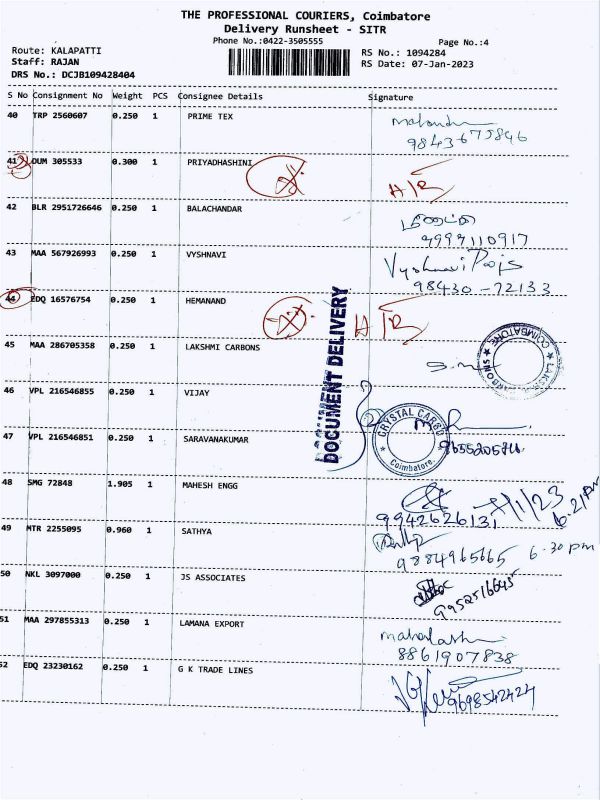 THE PROFESSIONAL COURIERS, Coimbatore
Delivery Runsheet - SITR
Phone No.:0422-3505555
Page No.:4
Route: KALAPATTI
RS No.: 1094284
Staff: RAJAN
RS Date: 07-Jan-2023
DRS No.: DCJB109428404
S No Consignment No Weight PCS Consignee Details Signature
40 TRP 2560607 0.250 1 PRIME TEX
9843675846
41 DUM 305533 0.300 1 PRIYADHASHINI
H/R
42 BLR 2951726646 0.250 1 BALACHANDAR
9999110917
43 MAA 567926993 0.250 1 VYSHNAVI
Vyshnavi
98430-72133
44 EDQ 16576754 0.250 1 HEMANAND
H/R
DOCUMENT DELIVERY
45 MAA 286705358 0.250 1 LAKSHMI CARBONS
COIMBATORE ★ LAKSHMI CARBONS ★
46 VPL 216546855 0.250 1 VIJAY
CRYSTAL CARGO
★ Coimbatore ★
47 VPL 216546851 0.250 1 SARAVANAKUMAR
48 SMG 72848 1.905 1 MAHESH ENGG
7/1/23
9942626131
6.21 pm
49 MTR 2255095 0.960 1 SATHYA
9884965665 6.30 pm
50 NKL 3097000 0.250 1 JS ASSOCIATES
9952516645
51 MAA 297855313 0.250 1 LAMANA EXPORT
8861907838
52 EDQ 23230162 0.250 1 G K TRADE LINES
9698542424